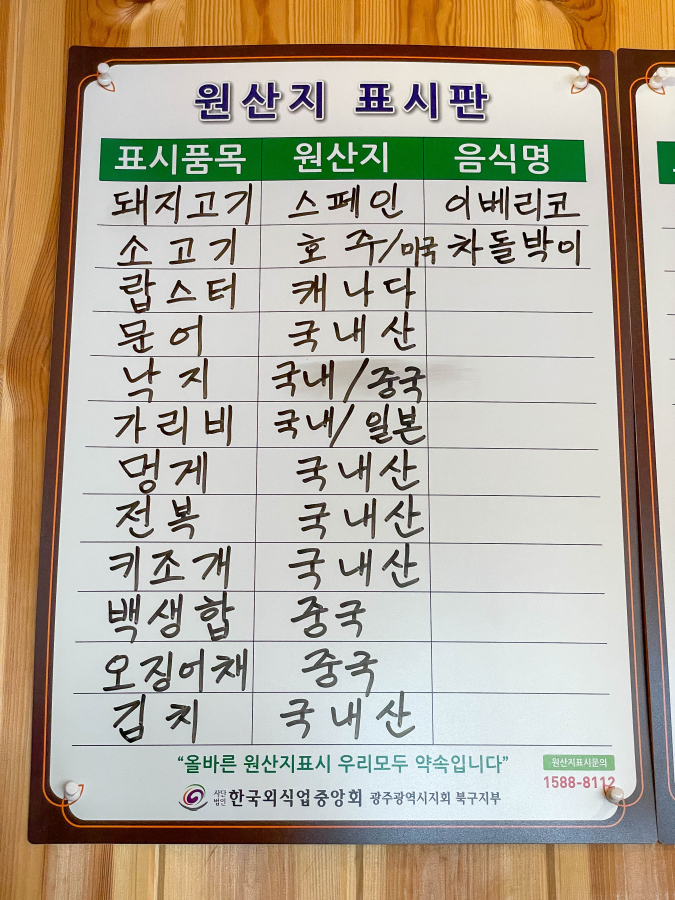 원산지 표시판
표시품목 원산지 음식명
돼지고기 스페인 이베리코
소고기 호주/미국 차돌박이
랍스터 캐나다
문어 국내산
낙지 국내/중국
가리비 국내/일본
멍게 국내산
전복 국내산
키조개 국내산
백생합 중국
오징어채 중국
김치 국내산
“올바른 원산지표시 우리모두 약속입니다”
원산지표시문의
1588-8112
사단법인 한국외식업중앙회 광주광역시지회 북구지부